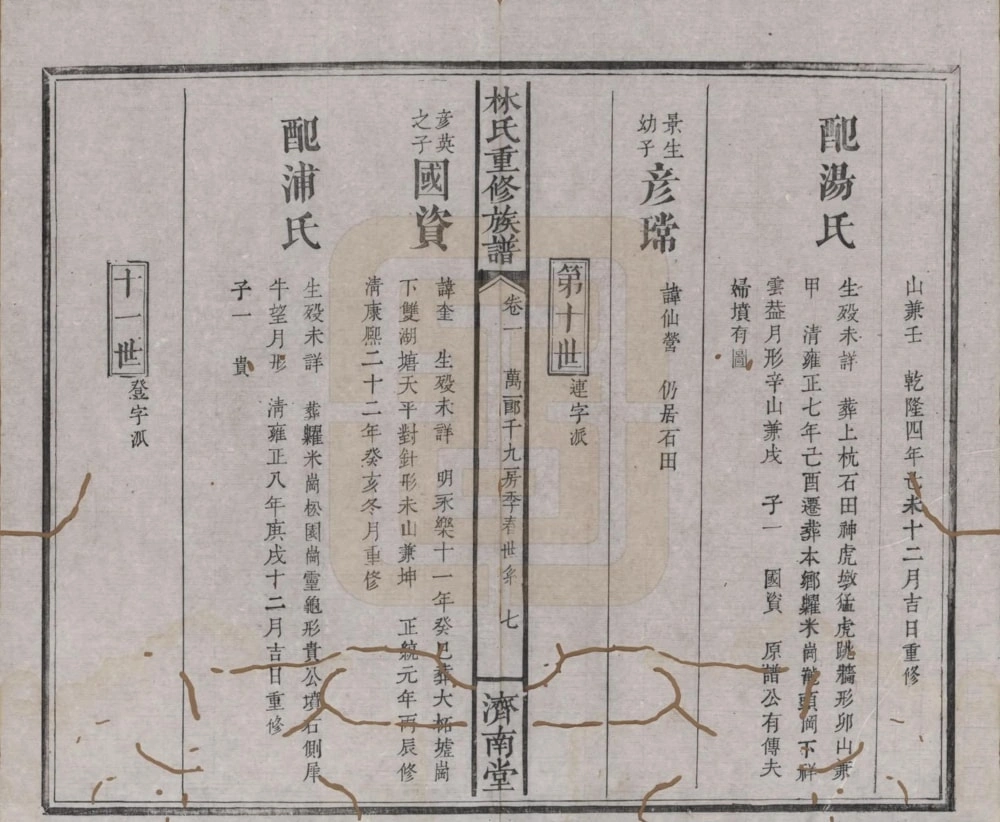 山兼壬　乾隆四年己未十二月吉日重修
配湯氏
生殁未詳　葬上杭石田神虎墩猛虎跳牆形卯山兼
甲　清雍正七年己酉遷葬本鄉糶米崗龍頭岡下祥
雲益月形辛山兼戌　子一　國資　原譜公有傳夫
婦墳有圖
景生
幼子
彥瑺
諱仙營　仍居石田
第十世
連字派
林氏重修族譜
卷一　萬一郎千九房季春世系　七
濟南堂
彥英
之子
國資
諱奎　生殁未詳　明永樂十一年癸巳葬大柘墟崗
下雙湖塘天平對針形未山兼坤　正統元年丙辰修
清康熙二十二年癸亥冬月重修
配浦氏
生殁未詳　葬糶米崗松園崗靈龜形貴公墳右側犀
牛望月形　清雍正八年庚戌十二月吉日重修
子一　貴
十一世
登字派